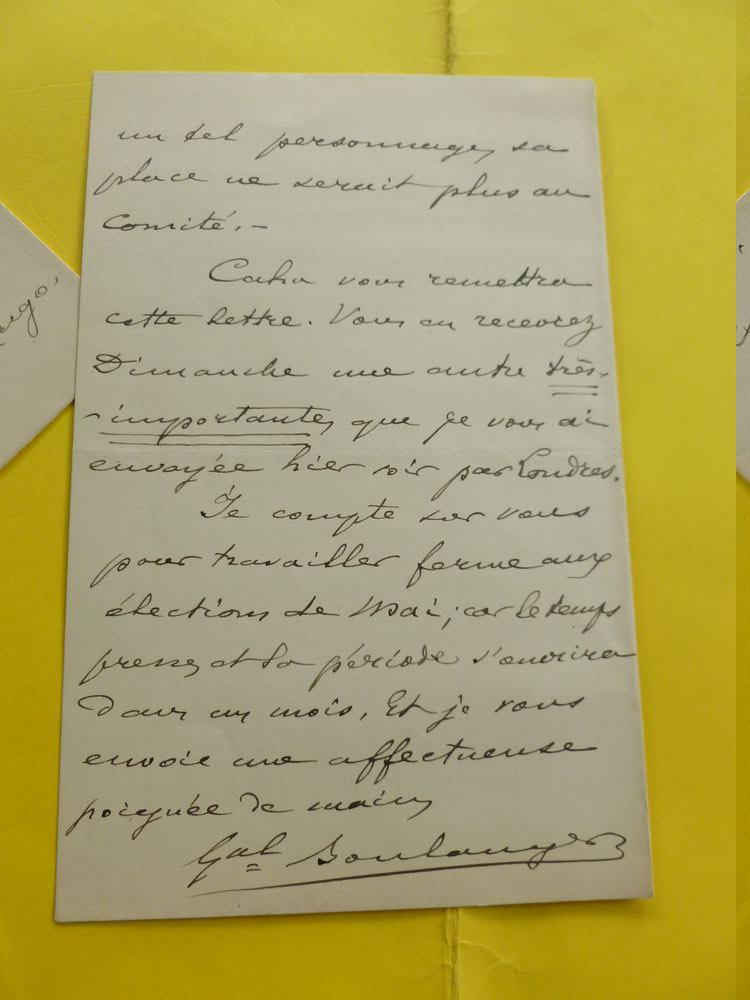 un tel personnage, sa
place ne serait plus au
Comité. -
Cahu vous remettra
cette lettre. Vous en recevrez
Dimanche une autre très-
-importante, que je vous ai
envoyée hier soir par Londres.
Je compte sur vous
pour travailler ferme aux
élections de Mai ; car le temps
presse, et la période s'ouvrira
dans un mois, Et je vous
envoie une affectueuse
poignée de main,
Gal Boulanger